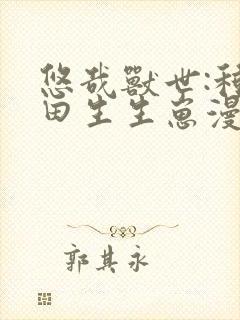 悠哉獸世:種
田生生崽漫
郭其永